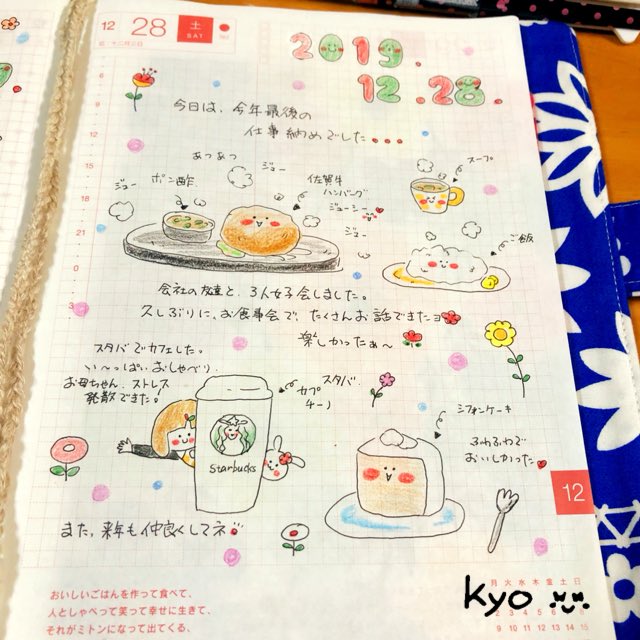 12 28 土
SAT
2019.
12.28.
今日は、今年最後の
仕事納めでした...
あつあつ
ジュー
ジュー
ポン酢
佐賀牛
ハンバーグ
ジューシー
ジュー
スープ
ご飯
会社の友達と、3人女子会しました。
久しぶりに、お食事会で、たくさんお話できたヨ
楽しかったぁ〜
スタバでカフェした。
い〜っぱいおしゃべり。
お母ちゃん、ストレス
発散できた。
スタバ
カプ
チーノ
Starbucks
シフォンケーキ
ふわふわで
おいしかった
また、来年も仲良くしてネ
12
おいしいごはんを作って食べて、
人としゃべって笑って幸せに生きて、
それがミトンになって出てくる、
月 火 水 木 金 土 日
kyo